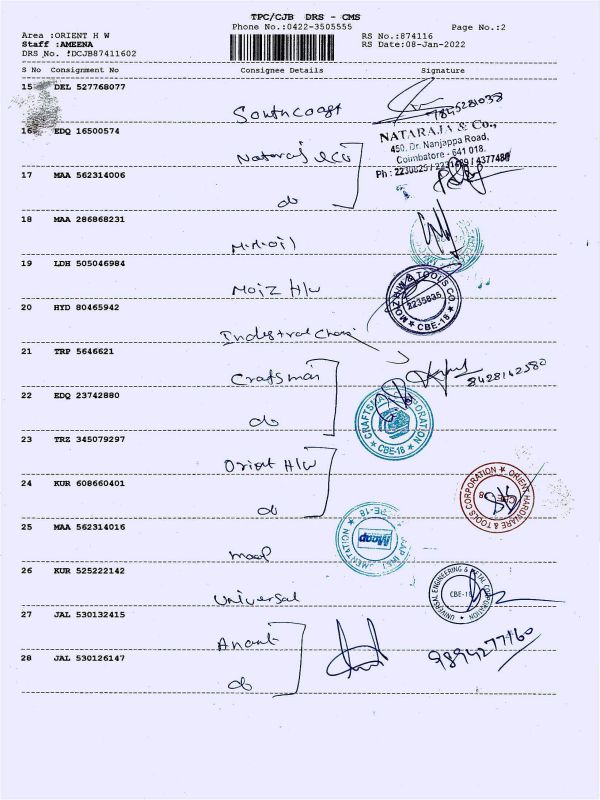 TPC/CJB DRS - CMS
Phone No.:0422-3505555
Page No.:2
Area :ORIENT H W
RS No.:874116
Staff :AMEENA
RS Date:08-Jan-2022
DRS No. :DCJB87411602
S No Consignment No Consignee Details Signature
15 DEL 527768077
Southcoast
9845281038
16 EDQ 16500574
Nataraj & Co
NATARAJA & Co.,
450, Dr. Nanjappa Road,
Coimbatore - 641 018.
Ph : 2230825 / 2231489 / 4377480
17 MAA 562314006
do
18 MAA 286868231
19 LDH 505046984
Moiz H/W
MOIZ H/W & TOOLS CO.
2235835
CBE-18
20 HYD 80465942
21 TRP 5646621
Craftsman
8428142580
22 EDQ 23742880
do
CRAFTSMAN CORPORATION
CBE-18
23 TRZ 345079297
Orient H/W
24 KUR 608660401
do
ORIENT HARDWARE & TOOLS CORPORATION
CBE 18
25 MAA 562314016
maap
Maap
26 KUR 525222142
Universal
UNIVERSAL ENGINEERING & METAL CORPORATION
CBE-18
27 JAL 530132415
Anant
9894277160
28 JAL 530126147
do